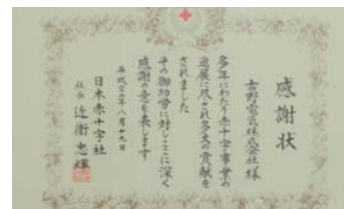 感謝状
古野電気株式会社様
多年にわたり赤十字事業の
進展に尽され多大の貢献を
されました
その御功労に対しここに深く
感謝の意を表します
八月十九日
日本赤十字社
社長 近衛忠煇